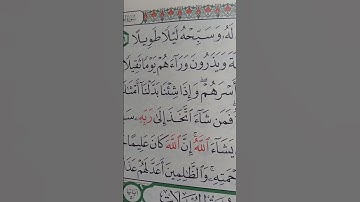 لَهُۥ وَسَبِّحْهُ لَيْلًا طَوِيلًا
وَيَذَرُونَ وَرَآءَهُمْ يَوْمًا ثَقِيلًا
أَسْرَهُمْ ۖ وَإِذَا شِئْنَا بَدَّلْنَآ
فَمَن شَآءَ ٱتَّخَذَ إِلَىٰ رَبِّهِۦ
يَشَآءَ ٱللَّهُ ۚ إِنَّ ٱللَّهَ كَانَ عَلِيمًا
وَٱلظَّٰلِمِينَ أَعَدَّ لَهُمْ